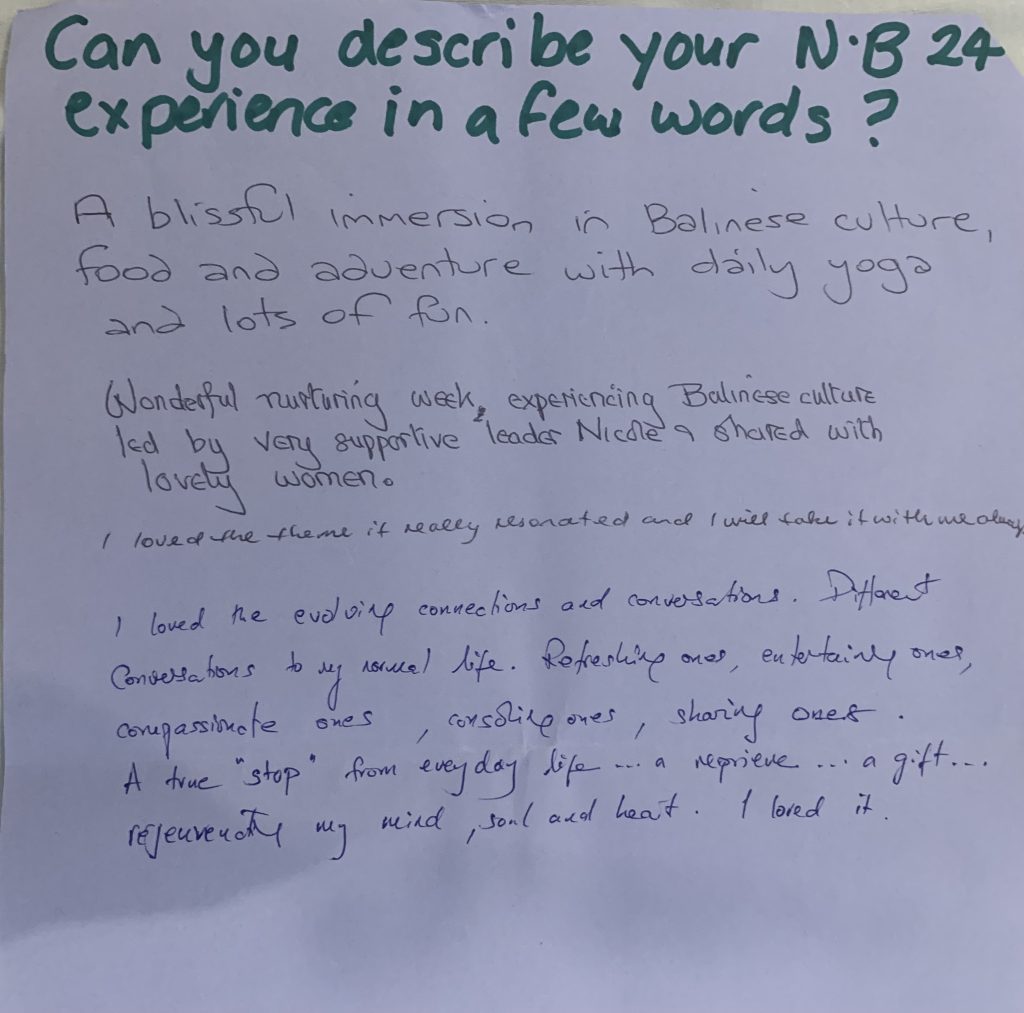 Can you describe your N.B 24
experience in a few words?
A blissful immersion in Balinese culture,
food and adventure with daily yoga
and lots of fun.
Wonderful nurturing week, experiencing Balinese culture
led by very supportive leader Nicole & shared with
lovely women.
I loved the theme it really resonated and I will take it with me always
I loved the evolving connections and conversations. Different
Conversations to my normal life. Refreshing ones, entertaining ones,
compassionate ones, consoling ones, sharing ones.
A true "stop" from everyday life ... a reprieve ... a gift...
rejeuvenating my mind, soul and heart. I loved it.